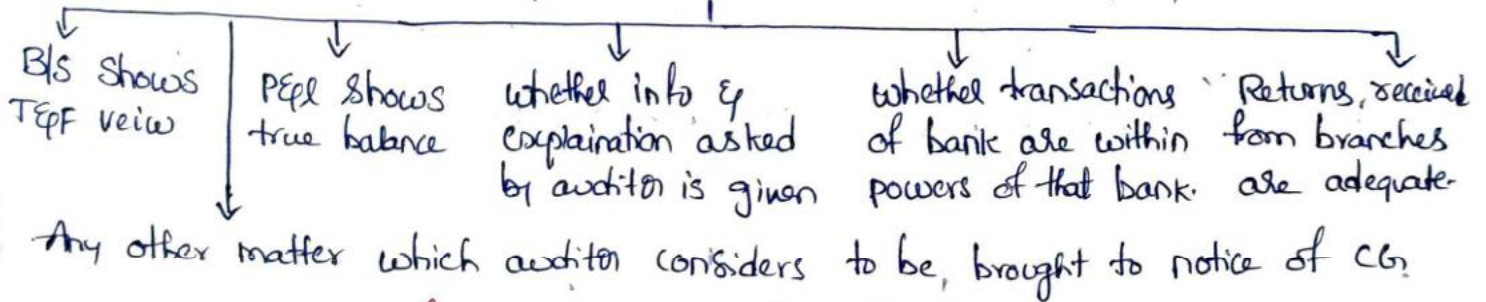 B/S shows
T&F veiw
P&L shows
true balance
whether info &
explaination asked
by auditor is given
whether transactions
of bank are within
powers of that bank.
Returns, received
from branches
are adequate.
Any other matter which auditor considers to be, brought to notice of CG.